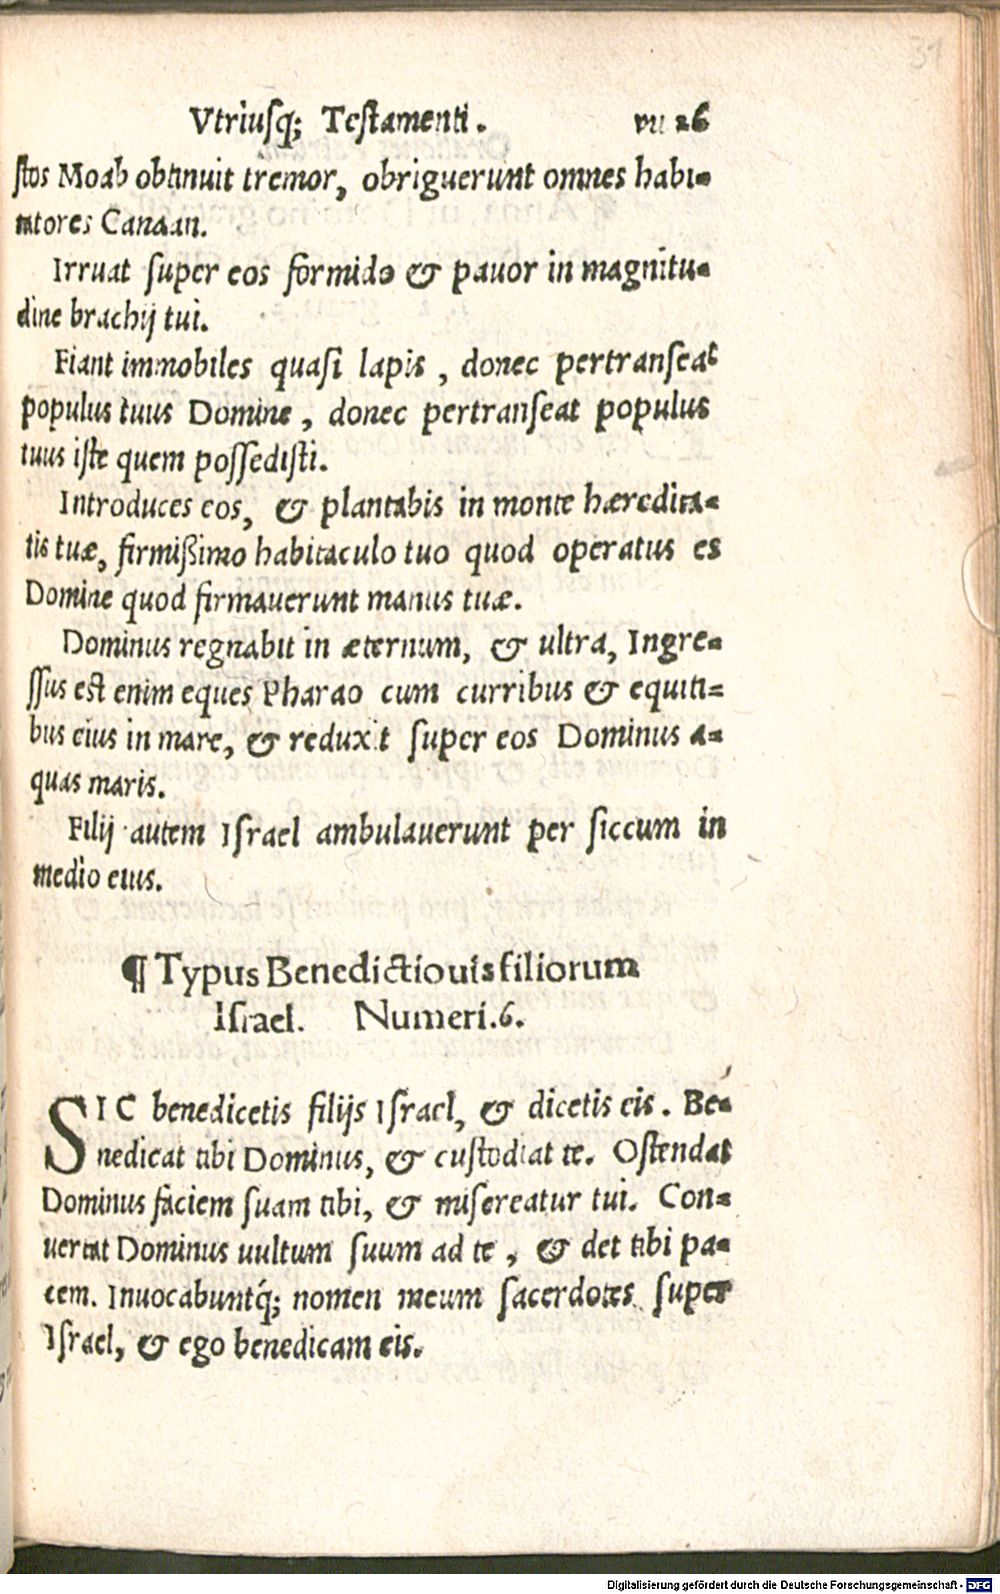 31
Vtriusq; Testamenti. vii 26
stos Moab obtinuit tremor, obriguerunt omnes habi-
tatores Canaan.
Irruat super eos formido & pauor in magnitu-
dine brachij tui.
Fiant immobiles quasi lapis , donec pertranseat
populus tuus Domine , donec pertranseat populus
tuus iste quem possedisti.
Introduces eos, & plantabis in monte hæredita-
tis tuæ, firmißimo habitaculo tuo quod operatus es
Domine quod firmauerunt manus tuæ.
Dominus regnabit in æternum, & ultra, Ingre-
ssus est enim eques Pharao cum curribus & equiti-
bus eius in mare, & reduxit super eos Dominus a-
quas maris.
Filij autem Israel ambulauerunt per siccum in
medio eius.
¶ Typus Benedictiouis filiorum
Israel. Numeri.6.
SIC benedicetis filijs Israel, & dicetis eis. Be-
nedicat tibi Dominus, & custodiat te. Ostendat
Dominus faciem suam tibi, & misereatur tui. Con-
uertat Dominus uultum suum ad te , & det tibi pa-
cem. Inuocabuntq́; nomen meum sacerdotes super
Israel, & ego benedicam eis.
Digitalisierung gefördert durch die Deutsche Forschungsgemeinschaft - DFG